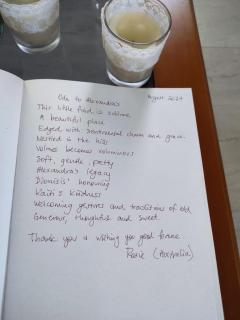 Ode to Alexandra's
August 2024
This little food is sublime
A beautiful place
Edged with sentimental charm and grace.
Nestled in the hills
Volmes becomes voluminous
Soft, gentle, pretty
Alexandra's legacy
Dionisis' honouring
Kaiti's kindness
Welcoming gestures and traditions of old
Generous, thoughtful and sweet.
Thank you & wishing you good fortune.
Rosie (Australia)